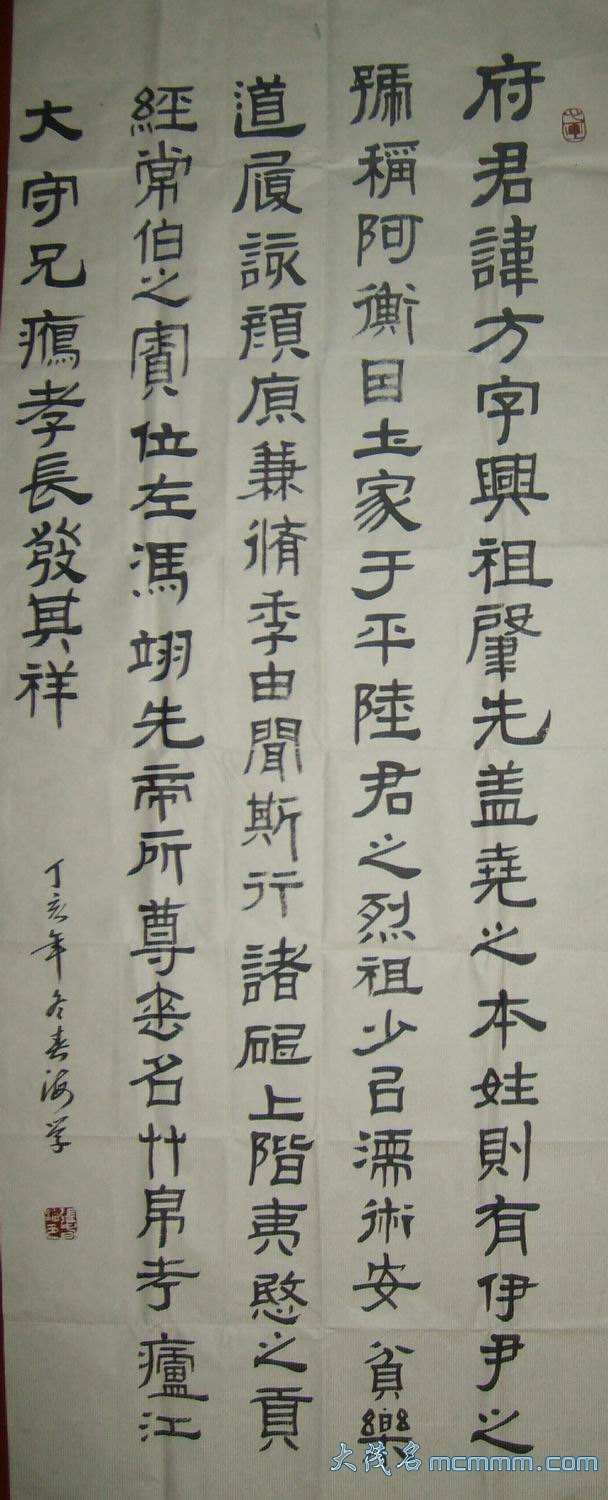 府君諱方字興祖肇先盖堯之本姓則有伊尹之
號稱阿衡因土家于平陸君之烈祖少㠯濡術安貧樂
道履該顔原兼脩季由聞斯行諸砥上階夷愍之貢
經常伯之寮位左馮翊先帝所尊垂名竹帛考廬江
大守兄鴈孝長發其祥
丁亥年冬春海学
大茂名mcmmm.com